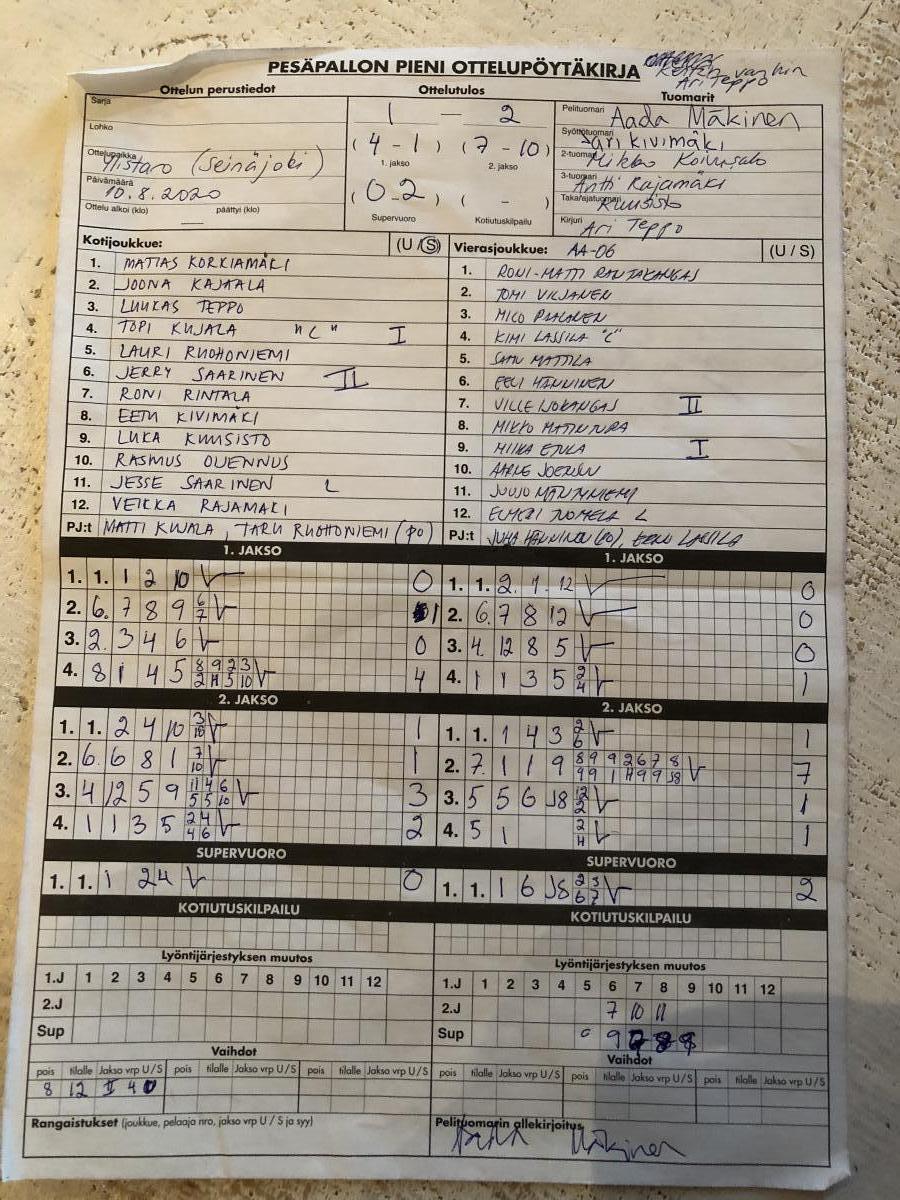 PESÄPALLON PIENI OTTELUPÖYTÄKIRJA
Ari Teppo
Ottelun perustiedot
Ottelutulos
Tuomarit
Sarja
Lohko
Ottelupaikka Ylistaro (Seinäjoki)
Päivämäärä 10.8.2020
Ottelu alkoi (klo) päättyi (klo)
1 — 2
(4 - 1) (7 - 10)
1. jakso 2. jakso
(0 - 2) ( - )
Supervuoro Kotiutuskilpailu
Pelituomari Aada Mäkinen
Syöttötuomari Jari Kivimäki
2-tuomari Mikko Koivusalo
3-tuomari Antti Rajamäki
Takarajatuomari Kuusisto
Kirjuri Ari Teppo
Kotijoukkue: (U / S)
1. MATIAS KORKIAMÄKI
2. JOONA KAJAALA
3. LUUKAS TEPPO
4. TOPI KUJALA "C" I
5. LAURI RUOHONIEMI
6. JERRY SAARINEN II
7. RONI RINTALA
8. EETU KIVIMÄKI
9. LUKA KUUSISTO
10. RASMUS OJENNUS
11. JESSE SAARINEN L
12. VEIKKA RAJAMÄKI
PJ:t MATTI KUJALA, TARU RUOHONIEMI (PO)
Vierasjoukkue: AA-06 (U / S)
1. RONI-MATTI RANTAKANGAS
2. TOMI VILJANEN
3. MICO
4. KIMI LASSILA "C"
5. MATTILA
6. EELI HÄNNINEN
7. VILLE ISOKANGAS II
8. MIKKO
9. MIIKA I
10. AARRE
11. JUUJO
12. L
PJ:t JUHA HÄNNINEN (PO), EERO LASSILA
1. JAKSO
1. 1. 1 2 10 0
2. 6. 7 8 9 6 7 1
3. 2. 3 4 6 0
4. 8 1 4 5 8 9 2 3 2 11 5 10 4
2. JAKSO
1. 1. 2 4 10 3 10 1
2. 6. 6 8 1 7 10 1
3. 4 12 5 9 11 4 6 5 5 10 3
4. 1 1 3 5 2 4 4 6 2
SUPERVUORO
1. 1. 1 2 4 0
KOTIUTUSKILPAILU
1. JAKSO
1. 1. 2. 1. 12 0
2. 6. 7 8 12 0
3. 4. 12 8 5 0
4. 1 1 3 5 2 4 1
2. JAKSO
1. 1. 1 4 3 2 6 1
2. 7. 1 1 9 8 9 9 2 6 7 8 9 9 1 11 9 9 J8 7
3. 5 5 6 J8 12 2 1
4. 5 1 2 11 1
SUPERVUORO
1. 1. 1 6 J8 2 3 6 7 2
KOTIUTUSKILPAILU
Lyöntijärjestyksen muutos
1.J 1 2 3 4 5 6 7 8 9 10 11 12
2.J
Sup
Lyöntijärjestyksen muutos
1.J 1 2 3 4 5 6 7 8 9 10 11 12
2.J 7 10 11
Sup 9
Vaihdot
pois tilalle Jakso vrp U/S pois tilalle Jakso vrp U/S pois tilalle Jakso vrp U/S
8 12 II 4
Vaihdot
pois tilalle Jakso vrp U/S pois tilalle Jakso vrp U/S pois tilalle Jakso vrp U/S
Rangaistukset (joukkue, pelaaja nro, jakso vrp U / S ja syy)
Pelituomarin allekirjoitus
Aada Mäkinen